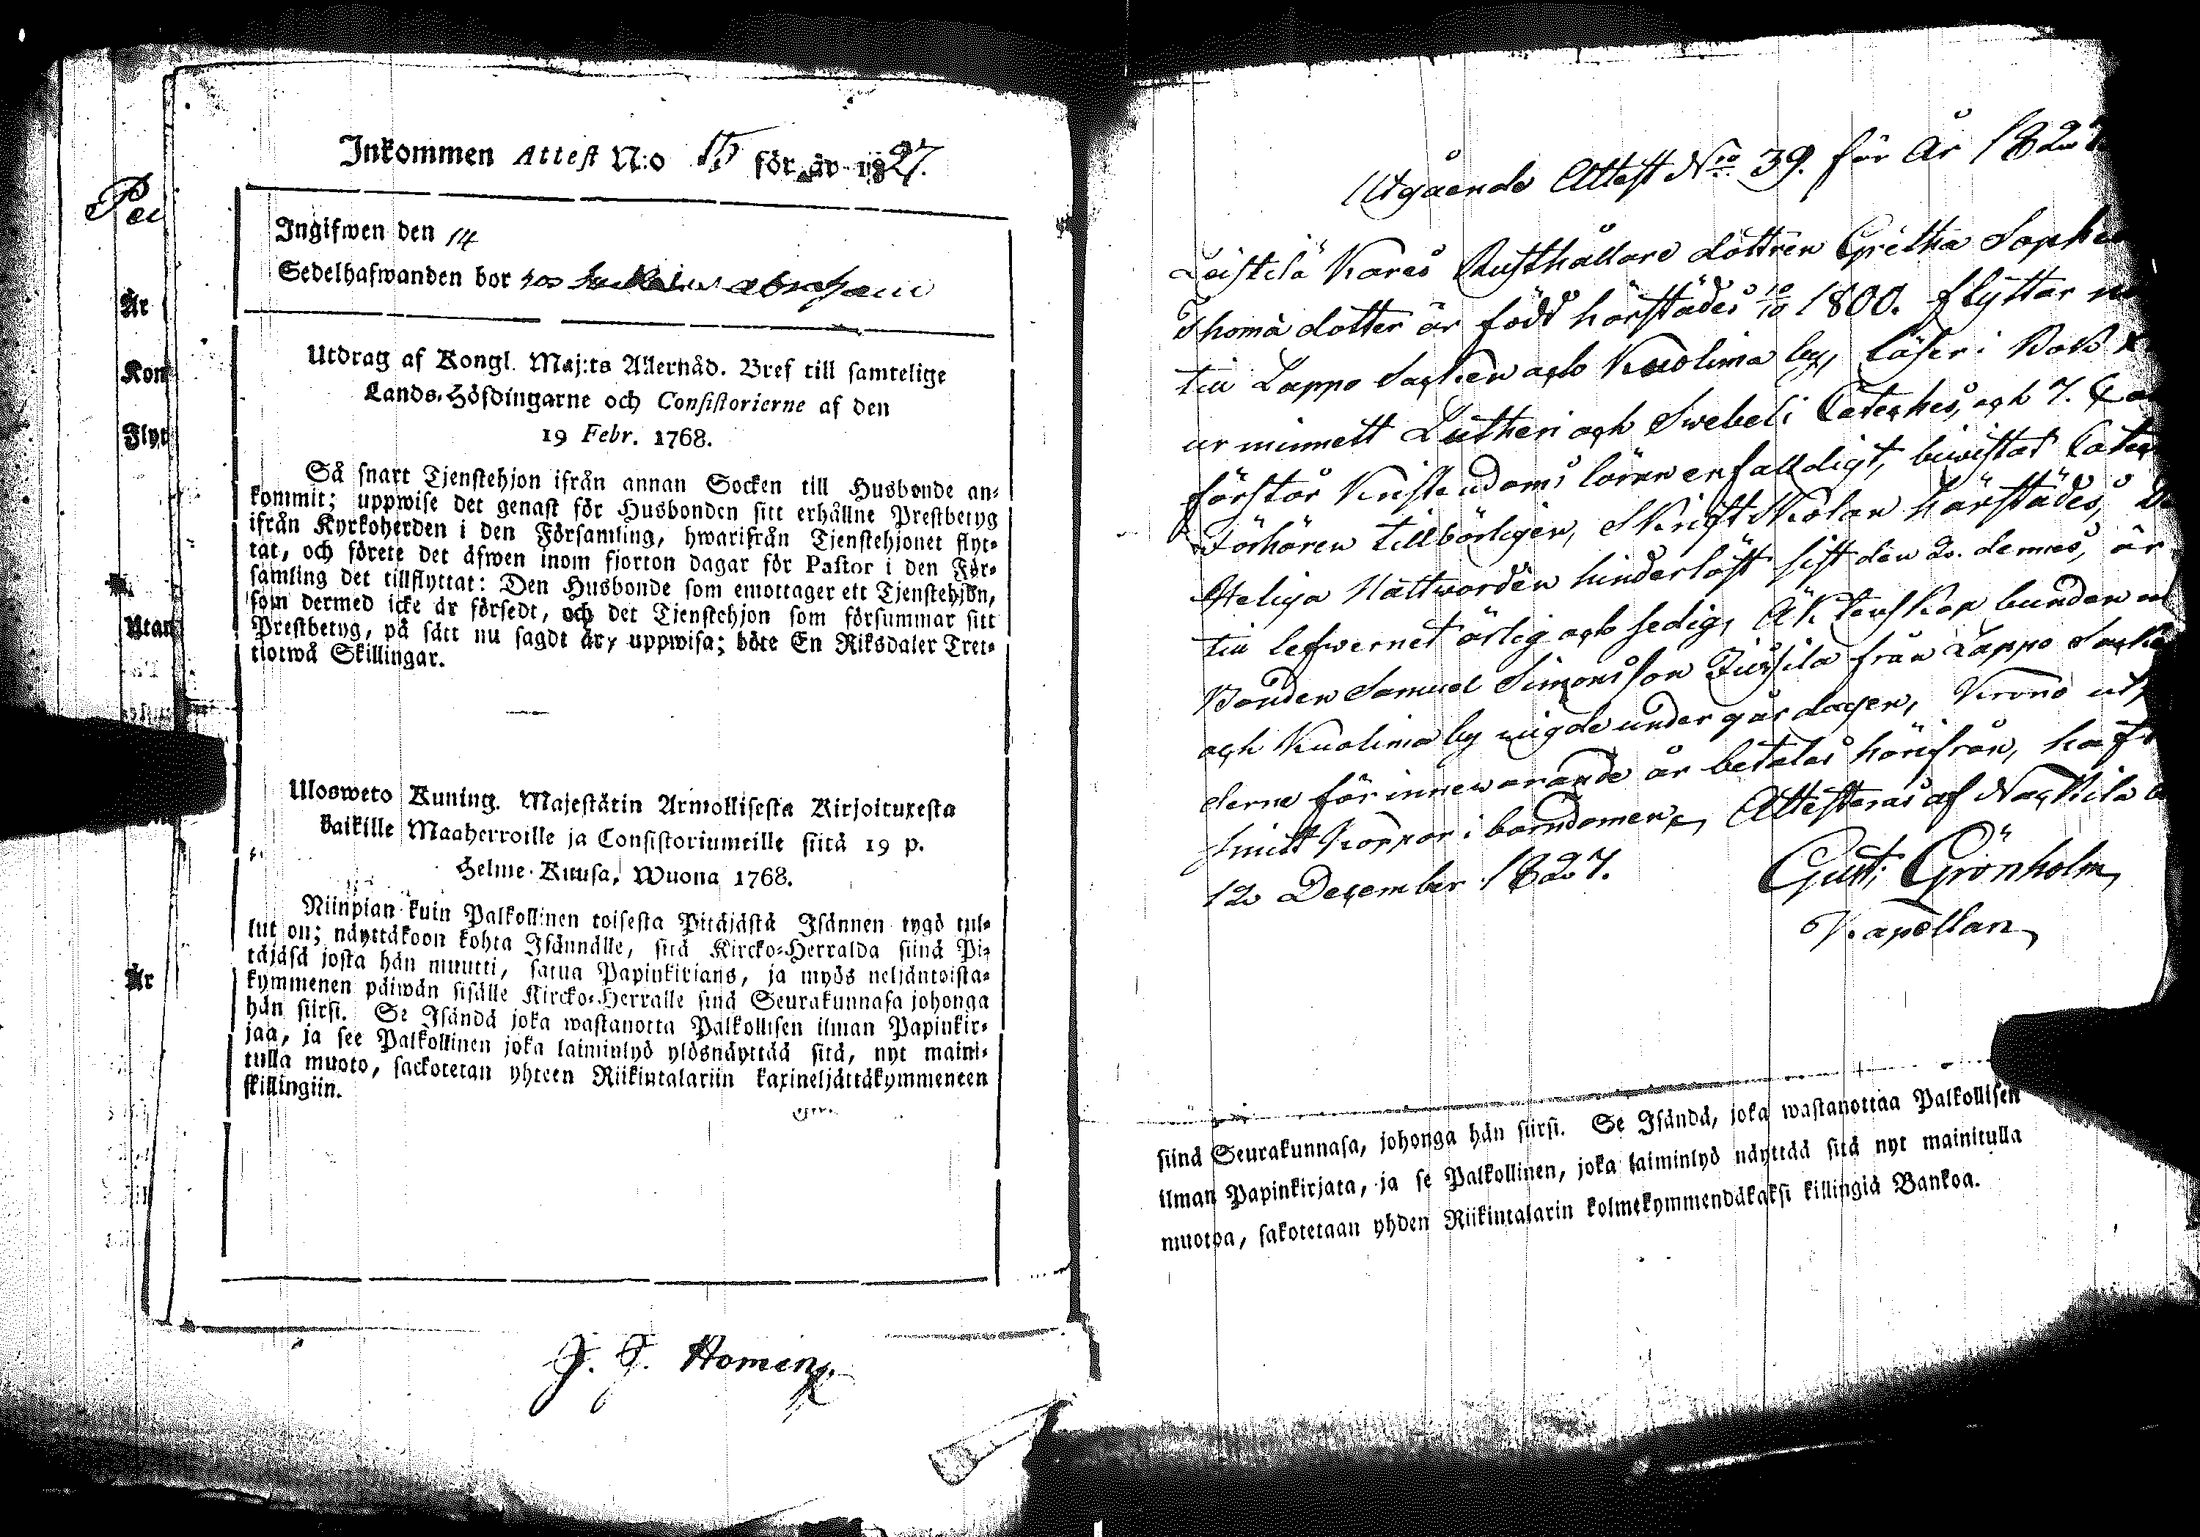 Inkommen Attest N:o 15 för år 1827.
Ingifwen den 14
Sedelhafwanden bor hos
Utdrag af Kongl. Maj:ts Allernåd. Bref till samtelige
Lands-Höfdingarne och Consistorierne af den
19 Febr. 1768.
Så snart Tjenstehjon ifrån annan Socken till Husbonde an-
kommit; uppwise det genast för Husbonden sitt erhållne Prestbetyg
ifrån Kyrkoherden i den Församling, hwarifrån Tjenstehjonet flyt-
tat, och förete det äfwen inom fjorton dagar för Pastor i den För-
samling det tillflyttat: Den Husbonde som emottager ett Tjenstehjon,
som dermed icke är försedt, och det Tjenstehjon som försummar sitt
Prestbetyg, på sätt nu sagdt är, uppwisa; böte En Riksdaler Tret-
tiotwå Skillingar.
Ulosweto Kuning. Majestätin Armollisesta Kirjoituxesta
kaikille Maaherroille ja Consistoriumeille siitä 19 p.
Helme-Kuusa, Wuona 1768.
Niinpian kuin Palkollinen toisesta Pitäjästä Isännen tygö tul-
lut on; näyttäkoon kohta Isännälle, sitä Kircko-Herralda siinä Pi-
täjäsä josta hän muutti, satua Papinkirians, ja myös neljäntoista-
kymmenen päiwän sisälle Kircko-Herralle siinä Seurakunnasa johonga
hän siirsi. Se Isändä joka wastanotta Palkollisen ilman Papinkir-
jaa, ja see Palkollinen joka laiminlyö ylösnäyttää sitä, nyt maini-
tulla muoto, sackotetan yhteen Riikintalariin kaxineljättäkymmeneen
skillingiin.
J. F. Homen
Pa
År
Kon
Flyt
Utan
År
Utgående Attest No 39. för År 1827
Leistilä Karés Rusthållare dottren Gretha Sophia
Thomä dotter är född härstädes 10/10 1800. flyttar nu
till Lappo Socken och Kuolima by, läser i Bok
ur minnett Lutheri och Swebeli Cateches, och 7.
förstår Kristendoms läran enfalldigt, biwistat
Förhören tillbörligen, Skrift Skolan härstädes,
Heliga Nattwarden hinderlöst sist den 2. dennes, är
till lefwernet ärlig och sedig, Äktenskap bunden
Bonden Samuel Simonsson från Lappo Socken
och Kuolima by wigde under gårdagen, Krono
derne för innewarande år betalas härifrån, haft
smitt Koppor i barndomen, Attesteras af Nackila
12 December 1827.
Gust: Grönholm,
Kapellan,
siinä Seurakunnasa, johonga hän siirsi. Se Isändä, joka wastanottaa Palkollisen
ilman Papinkirjata, ja se Palkollinen, joka laiminlyö näyttää sitä nyt mainitulla
muotoa, sakotetaan yhden Riikintalarin kolmekymmendäkaksi killingiä Bankoa.